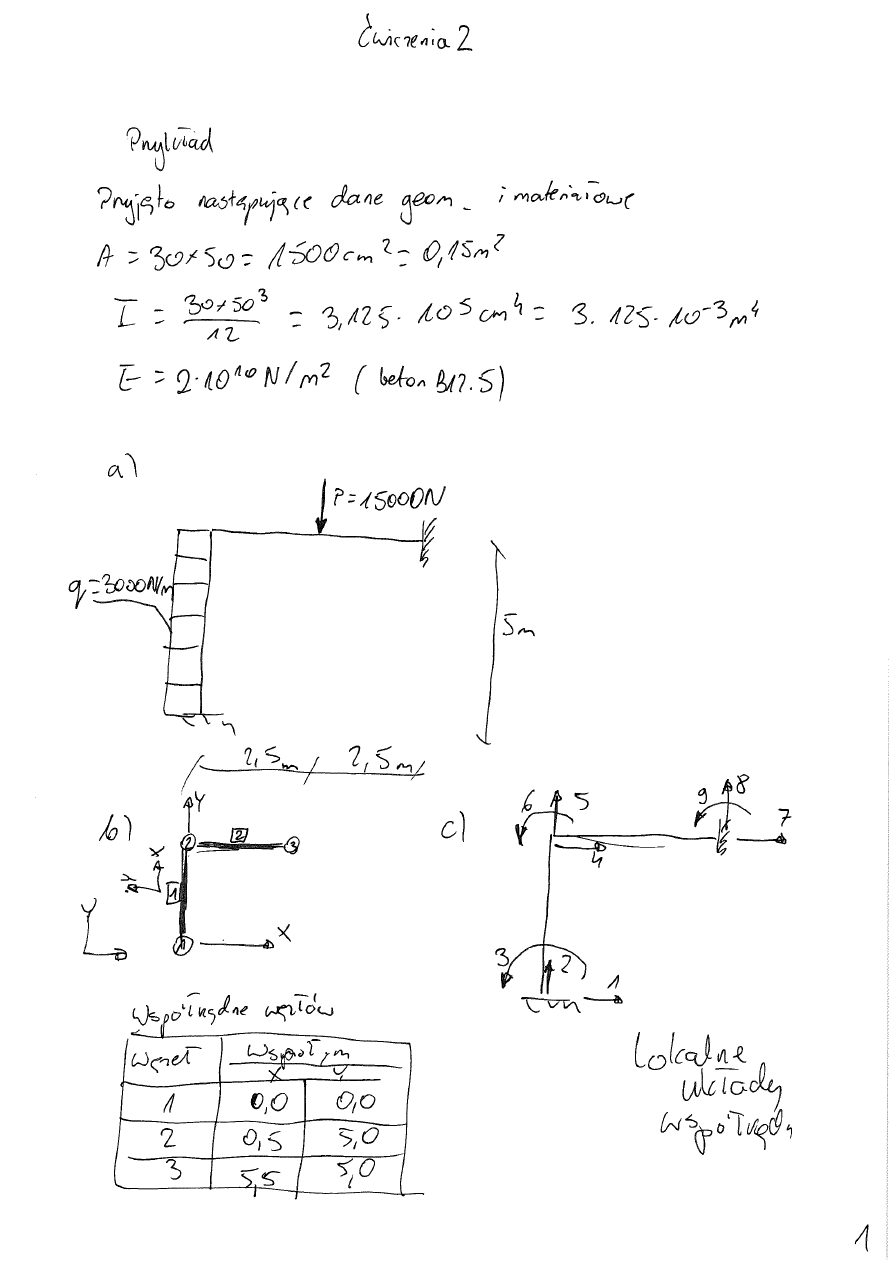 Ćwiczenia 2
Przykład
Przyjęto następujące dane geom. i materiałowe
A = 30×50 = 1500 cm² = 0,15 m²
I = 30×50³ / 12 = 3,125 · 10⁵ cm⁴ = 3.125 · 10⁻³ m⁴
E = 2·10¹⁰ N/m² (beton B12.5)
a)
P=15000N
q=3000N/m
5m
2,5m 2,5m
b) Y
2 2 3
X
Y 1
Y
1 X
c) 6 5 9 8 7
4
3 2 1
Współrzędne węzłów
Węzeł Współrzn
X Y
1 0,0 0,0
2 0,5 5,0
3 5,5 5,0
Lokalne
układy
współrzędn
1